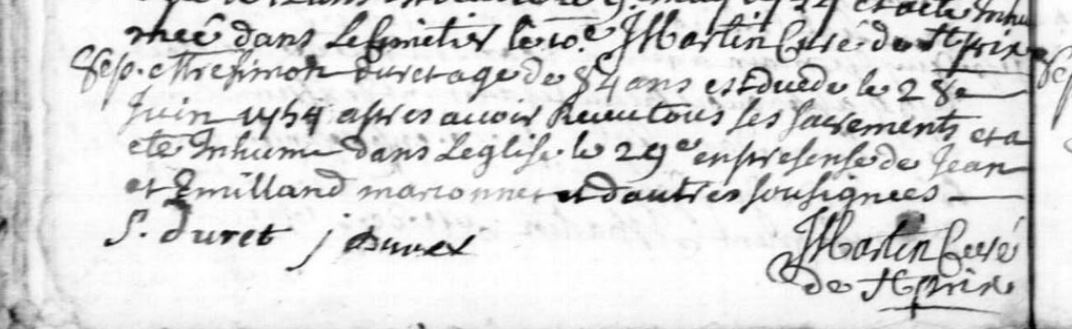 ete Inhu
mée dans Le Cimetier le 10.e J Martin Curé de St prix
Sep. Mre Simon duret agé de 84 ans est dédé le 28e
Juin 1754 apres avoir Receu tous ses sacrements et a
eté Inhumé dans L'eglise le 29e en presense de Jean
et Emilland marionnet et d'autres sousignees
S. duret J Duret J Martin Curé
de St prix